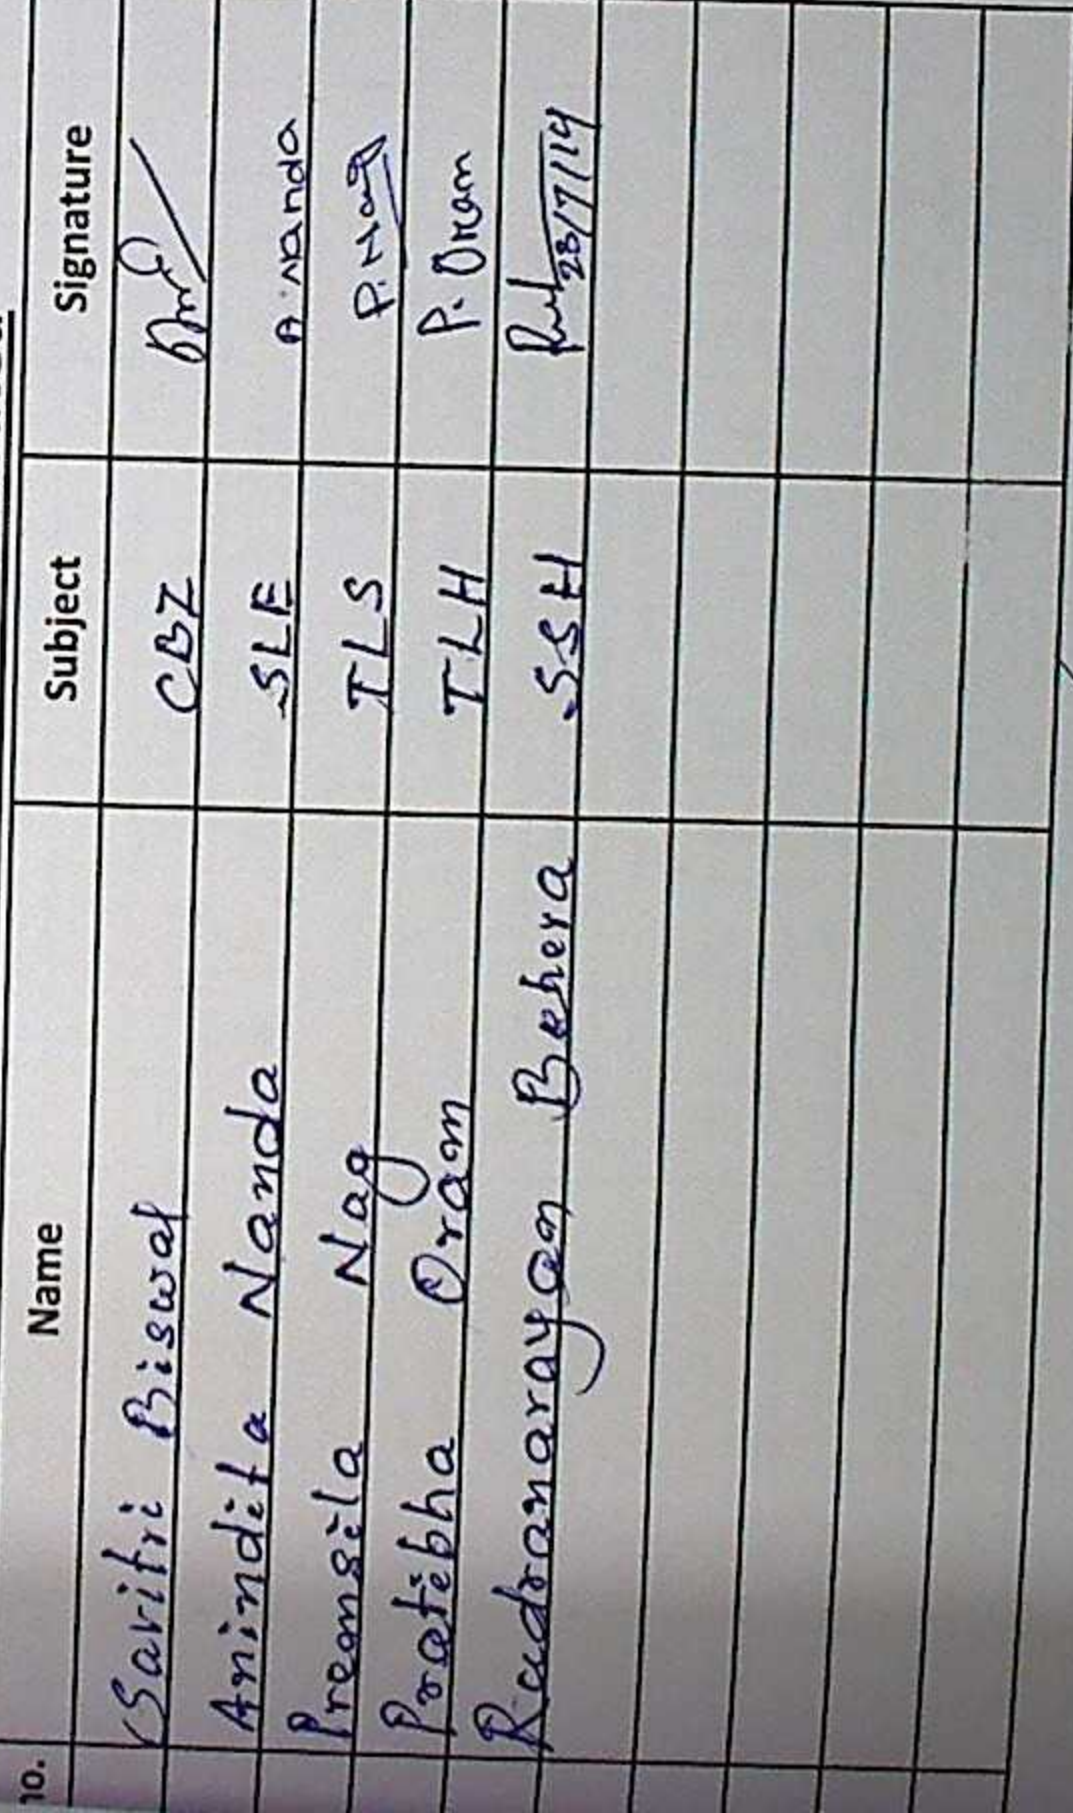 no. Name Subject Signature
Savitri Biswal CBZ
Anindita Nanda SLE A. Nanda
Premsila Nag TLS P. Nag
Pratibha Oram TLH P. Oram
Rudranarayan Behera SSH 28/7/14